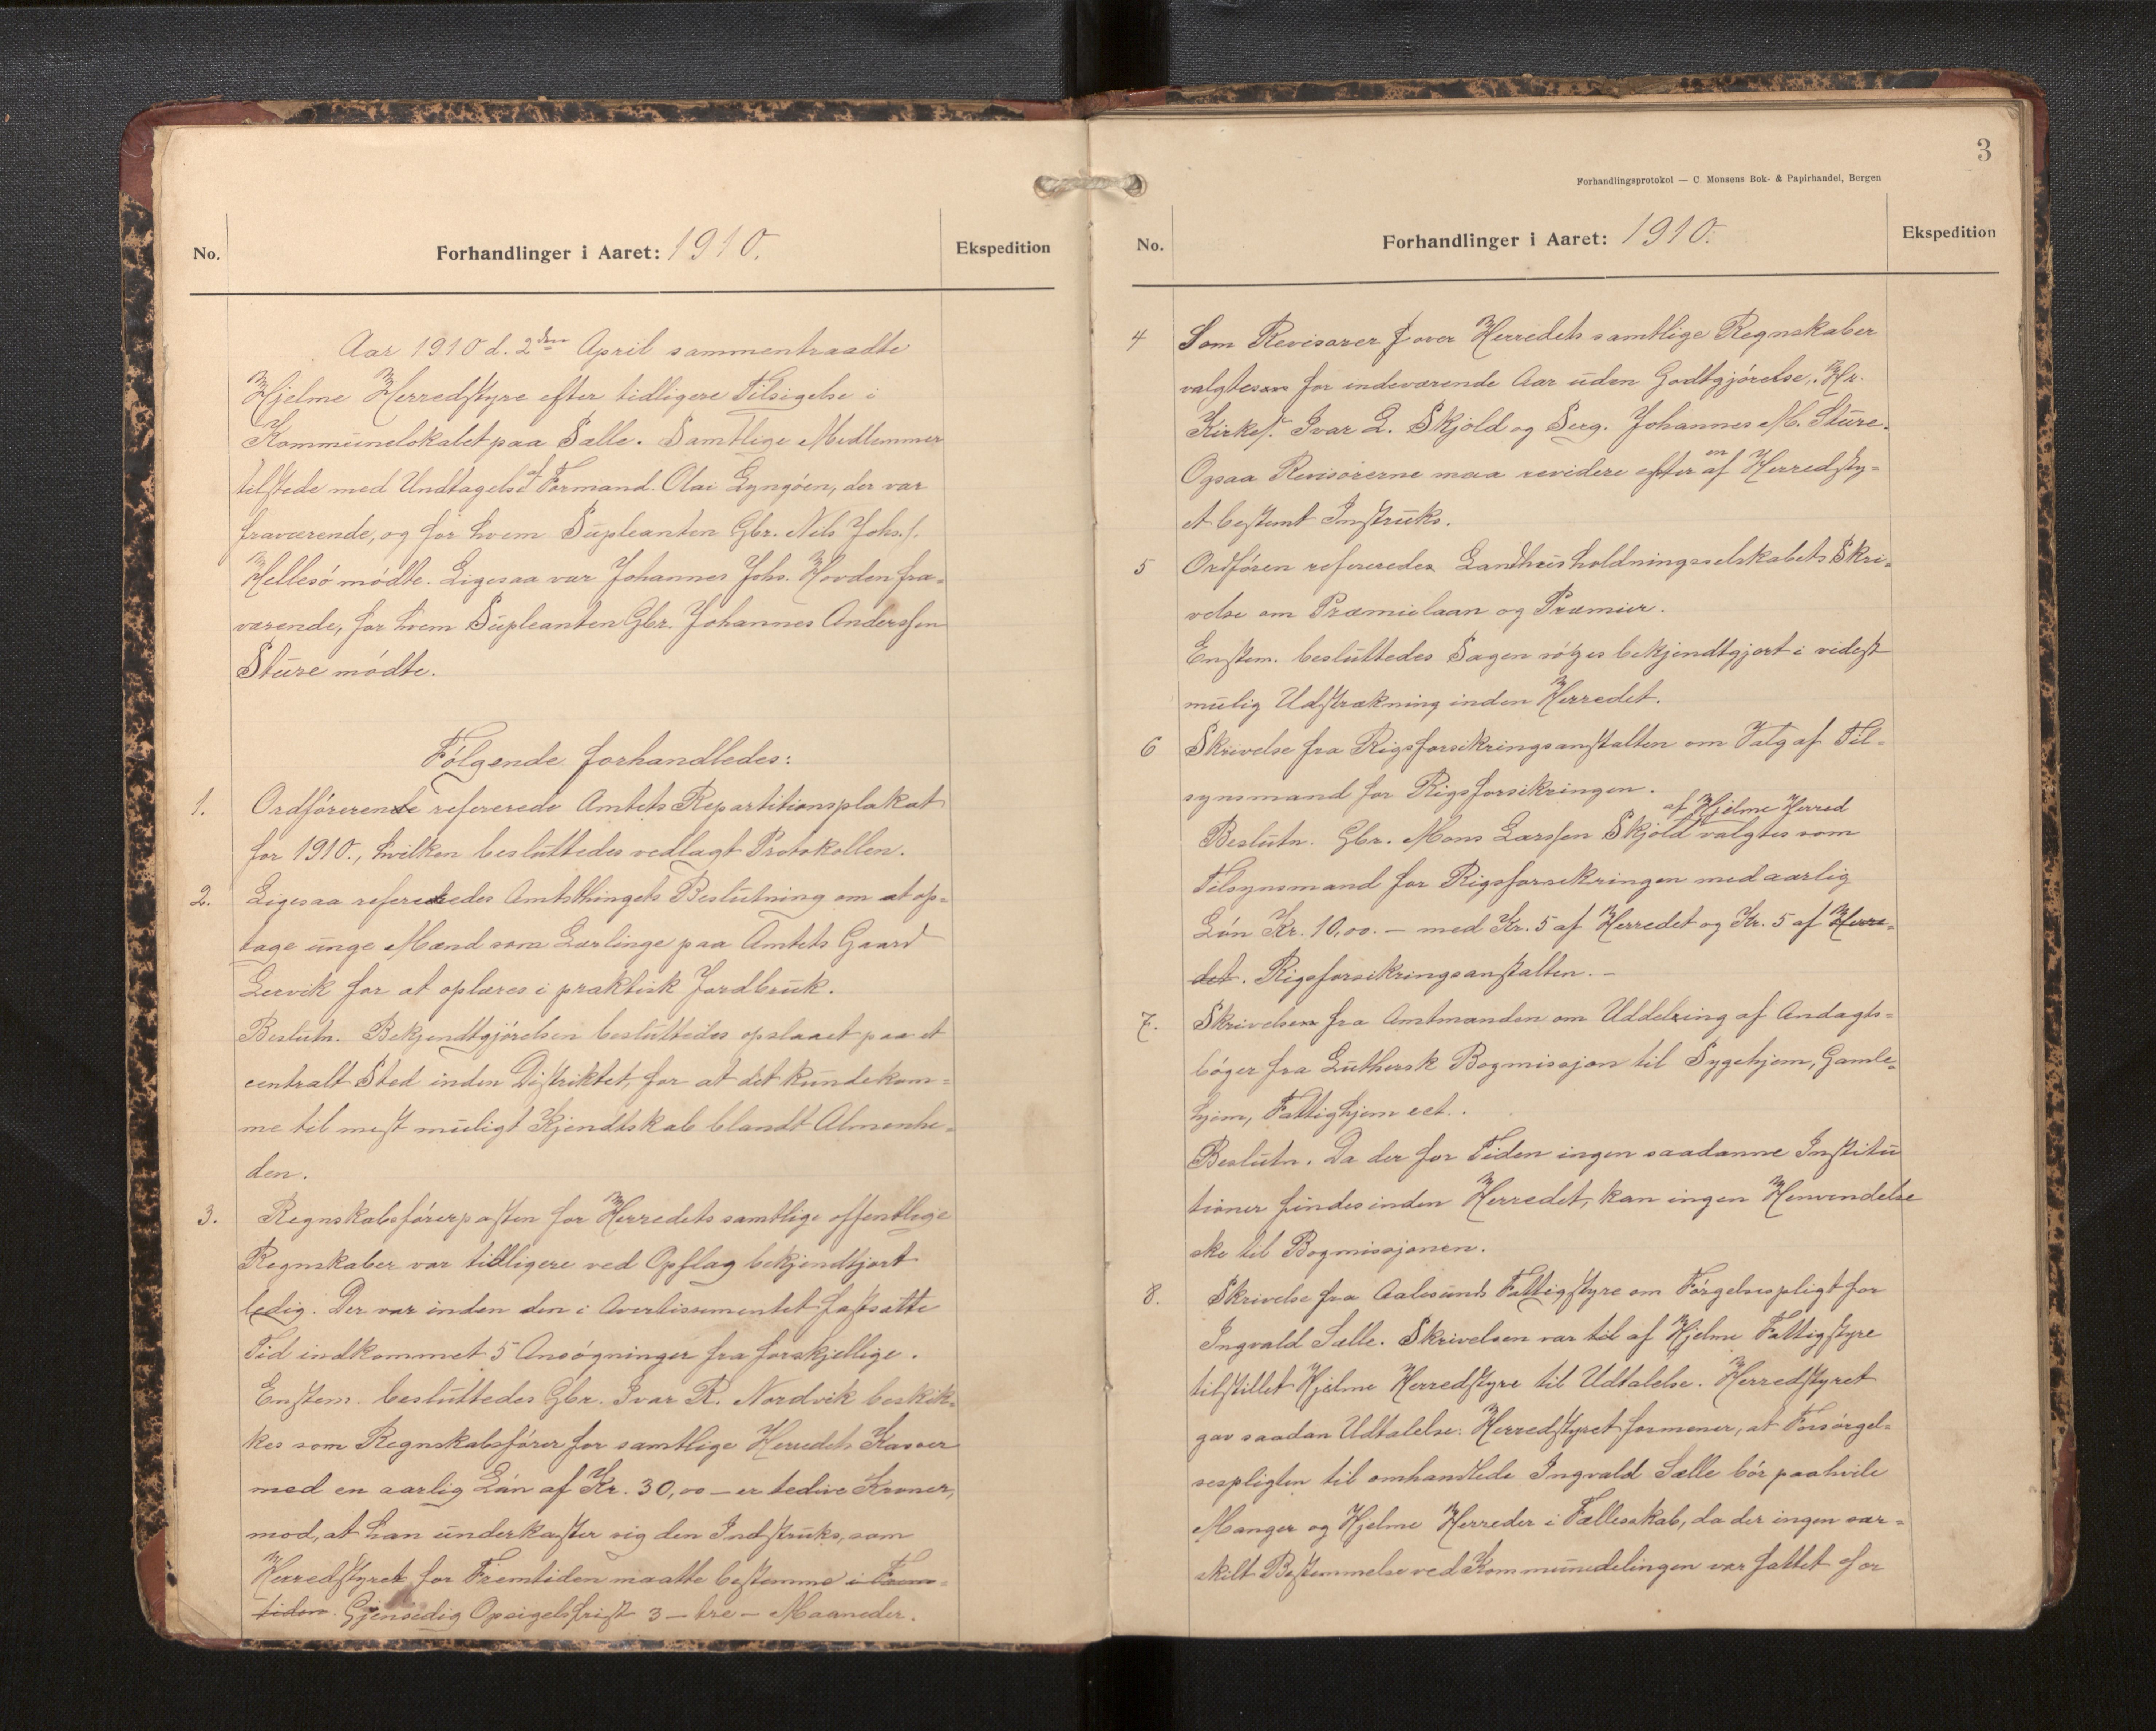 No.
Forhandlinger i Aaret: 1910.
Ekspedition
Aar 1910 d. 2den April sammentraadte
Hjelme Herredstyre efter tidligere Tilsigelse i
Kommunelokalet paa Sælle. Samtlige Medlemmer
tilstede med Undtagelse af Formand. Olai Lyngöen, der var
fraværende, og för hvem Supleanten Gbr. Nils Johs.s.
Hellesö mödte. Ligesaa var Johannes Johs. Hovden fra-
værende, for hvem Supleanten Gbr. Johannes Anderssen
Sture mödte.
Fölgende forhandledes:
1. Ordföreren refererede Amtets Repartitionsplakat
for 1910., hvilken besluttedes vedlagt Protokollen.
2. Ligesaa refereredes Amtsthingets Beslutning om at op-
tage unge Mænd som Lærlinge paa Amtets Gaard
Lervik for at oplæres i praktisk Jordbruk.
Beslutn. Bekjendtgjörelsen besluttedes opslaaet paa et
centralt Sted inden Distriktet, for at det kunde kom-
me til mest muligt Kjendtskab blandt Almenhe-
den.
3. Regnskabsförerposten for Herredets samtlige offentlige
Regnskaber var tidligere ved Opslag bekjendtjort
ledig. Der var inden den i Avertissementet fastsatte
Tid indkommet 5 Ansögninger fra forskjellige.
Enstem. besluttedes Gbr. Ivar R. Nordvik beskik-
kes som Regnskabsförer for samtlige Herredets Kasser
med en aarlig Lön af Kr. 30,00 – er tedive Kroner,
mod, at han underkaster sig den Indstruks, som
Herredstyret for Fremtiden maatte bestemme i Frem-
tiden. Gjensidig Opsigelsfrist 3 – tre – Maaneder.
3
Forhandlingsprotokol — C. Monsens Bok- & Papirhandel, Bergen
No.
Forhandlinger i Aaret: 1910.
Ekspedition
4 Som Revisorer f over Herredets samtlige Regnskaber
valgtes for indeværende Aar uden Godtgjörelse. Hr.
Kirkes. Ivar L. Skjold og Serg. Johannes M. Sture.
Ogsaa Revisorerne maa revidere efter en af Herredsty-
et bestemt Instruks.
5 Ordfören refererede Landhusholdningsselskabets Skri-
velse om Præmielaan og Præmier.
Enstem. besluttedes Sagen söges bekjendtgjort i videst
mulig Udstrækning inden Herredet.
6 Skrivelse fra Rigsforsikringsanstalten om Valg af Til-
synsmand for Rigsforsikringen.
Beslutn. Gbr. Mons Larssen Skjold af Hjelme Herred valgtes som
Tilsynsmand for Rigsforsekringen med aarlig
Lön Kr. 10,00. – med Kr. 5 af Herredet og Kr. 5 af Herre-
det. Rigsforsikringsanstalten. –
7. Skrivelse fra Amtmanden om Uddeling af Andagts-
böger fra Luthersk Bogmissjon til Sygehjem, Gamle-
hjem, Fattighjem ect.
Beslutn. Da der for Tiden ingen saadanne Institu
tioner findes inden Herredet, kan ingen Henvendelse
ske til Bogmissjonen.
8. Skrivelse fra Aalesunds Fattigstyre om Förgelsespligt for
Ingvald Sælle. Skrivelsen var til af Hjelme Fattigstyre
tilstillet Hjelme Herredstyre til Udtalelse. Herredstyret
gav saadan Udtalelse: Herredstyret formener, at Forsörgel-
sespligten til omhandlede Ingvald Sælle bör paahvile
Manger og Hjelme Herreder i Fællesskab, da der ingen sær-
skilt Bestemmelse ved Kommunedelingen var fattet for